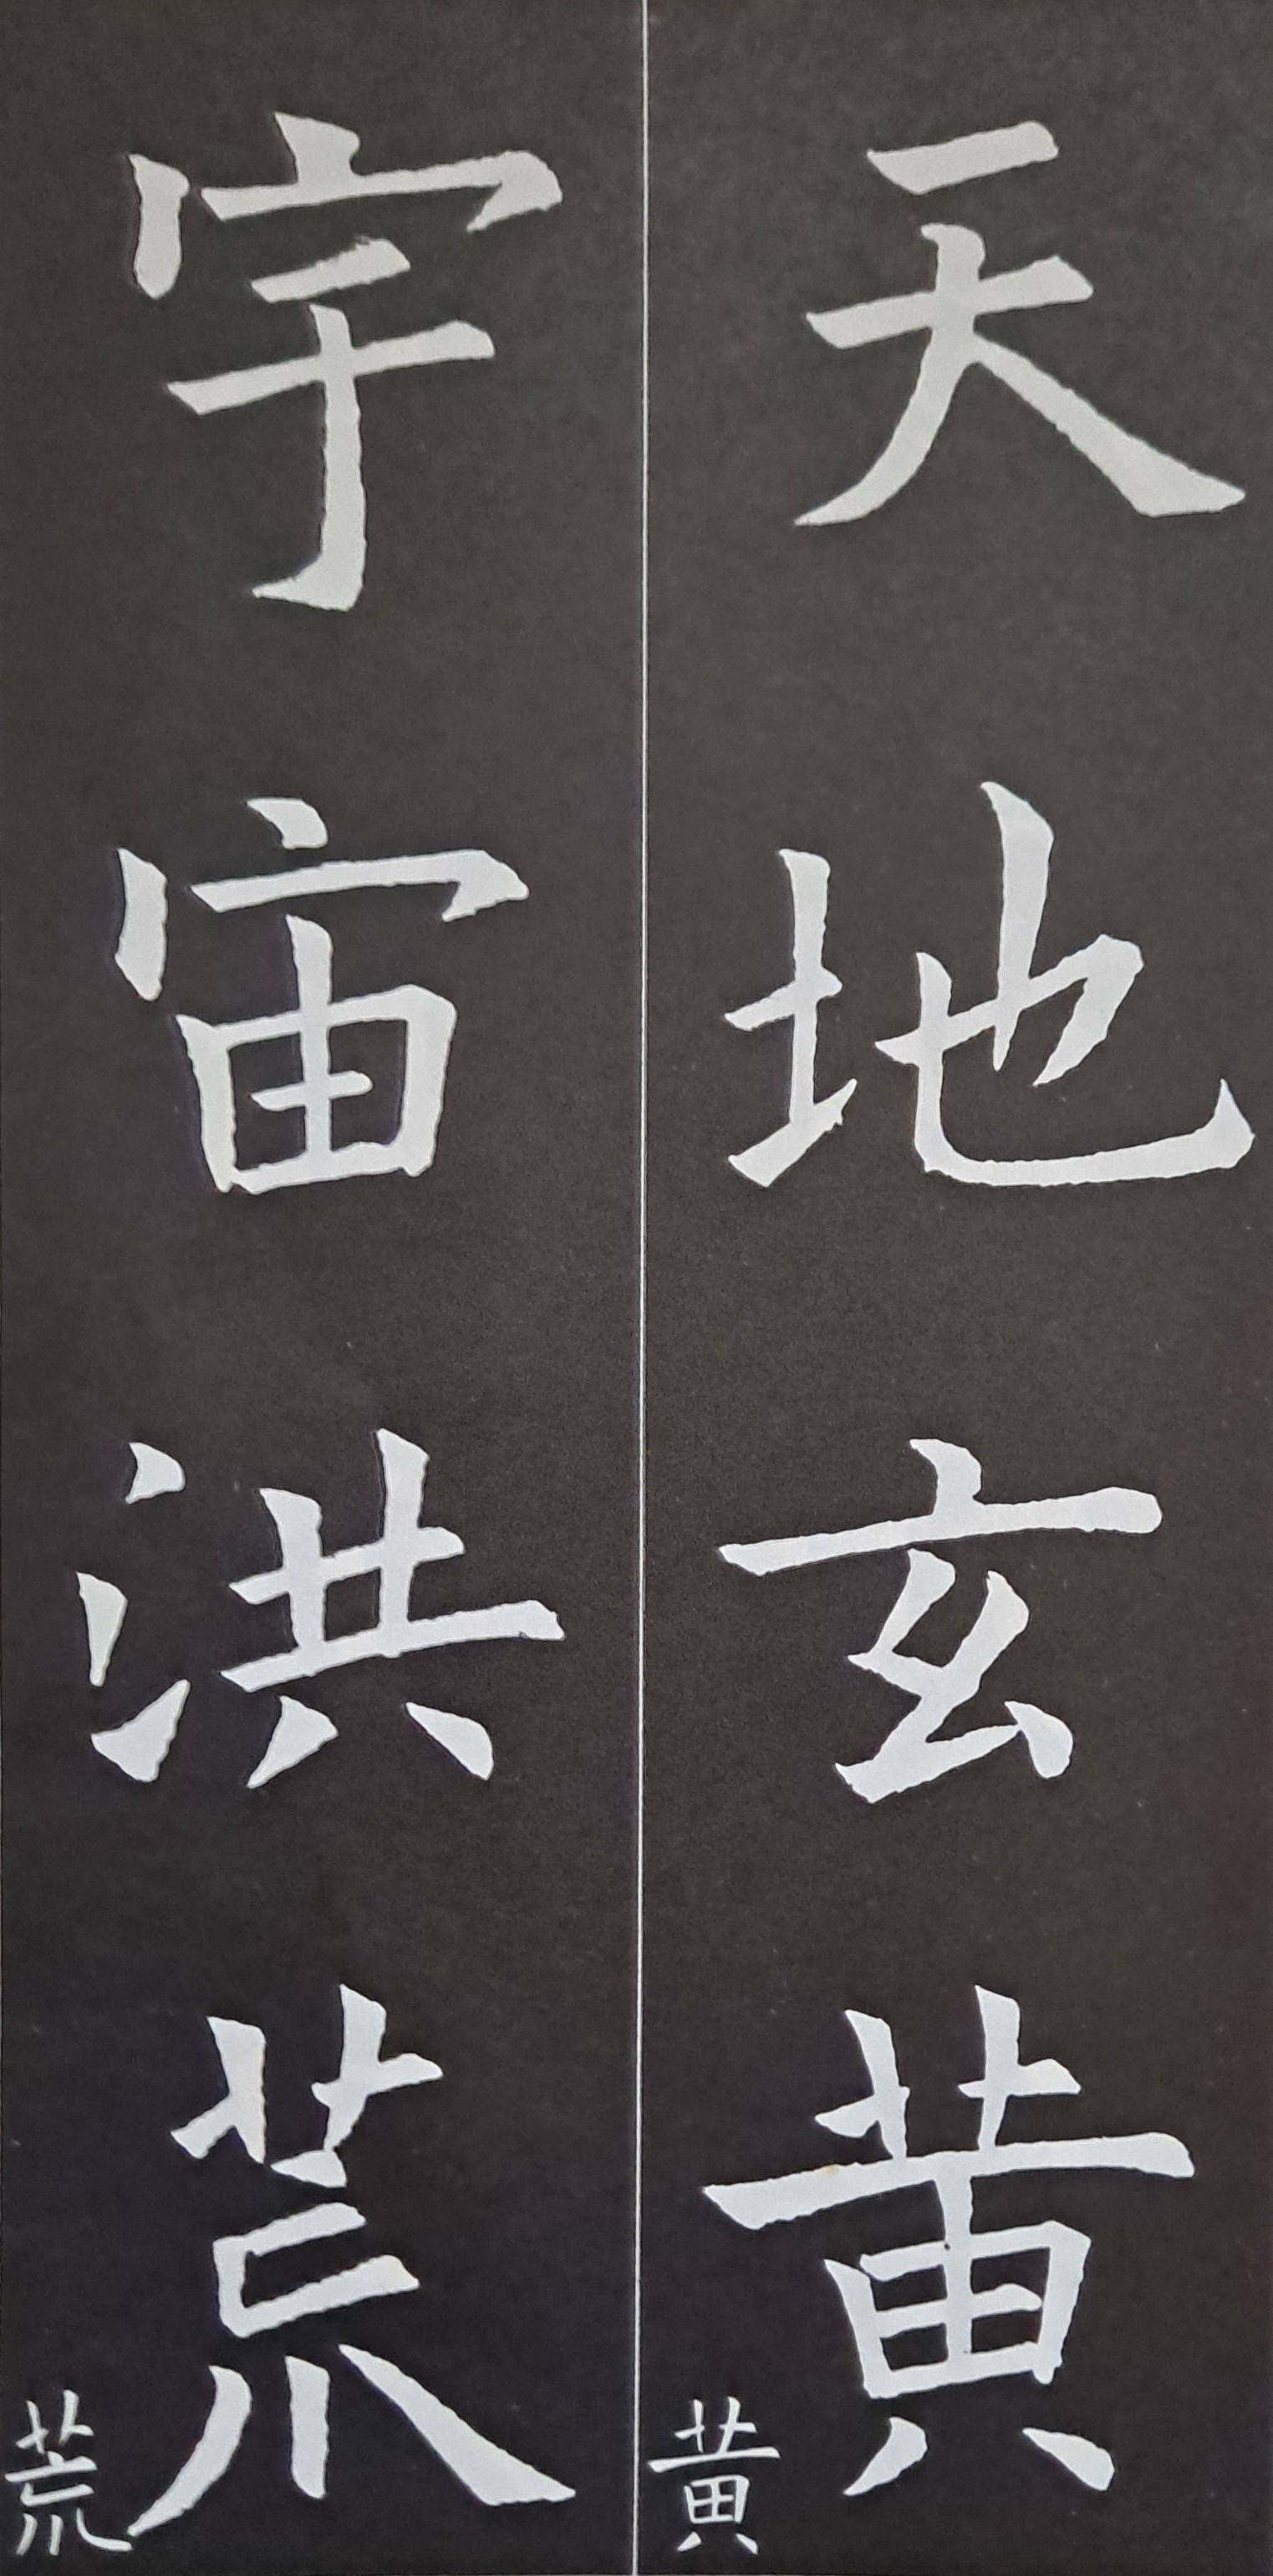 天地玄黄
黄
宇宙洪荒
荒